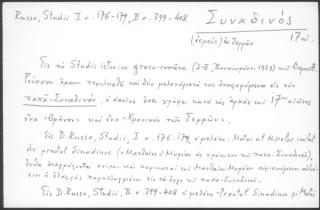 Russo, Studii I σ. 176-179, II σ. 399-408
Συναδινός
(ἱερεύς) ἐκ Σερρῶν
17 αἰ.
Εἰς τὰ Studii istorice greco-române (I-II, Βουκουρέστι 1939) τοῦ
Ρούσσου ἔχουν περιληφθῆ καὶ δύο μελετήματα που ἀναφέρονται εἰς τὸν
παπᾶ-Συναδινόν, ὁ ὁποῖος ἔχει γράψει κατὰ τὰς ἀρχὰς τοῦ 17ου αἰῶνος
ἕνα «Θρῆνον» καὶ ἕνα «Χρονικὸν τῶν Σερρῶν».
Εἰς D. Russo, Studii, I σ. 176-179, ἡ μελέτη: Matei al Mirelor imitat
de preotul Sinadinos (= Ματθαῖος ὁ Μυρέων ὡς πρότυπον τοῦ παπᾶ-Συναδινοῦ),
ἔνθα ἀναγράφονται στίχοι τοῦ ποιήματος τοῦ Ματθαίου Μυρέων εὑρισκόμενοι αὐτούσιοι
εἴτε ἐλαφρῶς παρηλλαγμένοι εἰς τὸ ἔργο τοῦ παπᾶ-Συναδινοῦ.
Εἰς D. Russo, Studii, II σ. 399-408 ἡ μελέτη: Preotul Sinadinos și Matei